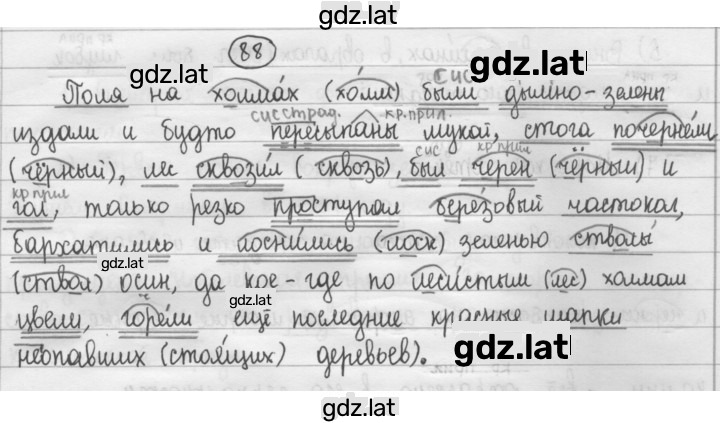 gdz.lat
88
gdz.lat
gdz.lat
кр прил
сис
Поля на холмах (холм) были дымно-зелены
сис страд. кр. прил.
издали и будто пересыпаны мукай, стога почернели
сис кр прил
(чёрный), лес сквозил (сквозь), был черен (чёрный) и
кр прил
гол, только резко проступал берёзовый частокол,
бархатились и лоснились (лоск) зеленью стволы
gdz.lat gdz.lat
(ствол) осин, да кое-где по лесистым (лес) холмам
gdz.lat
цвели, горели ещё последние красные шапки
gdz.lat
неопавших (стоящих) деревьев).
gdz.lat